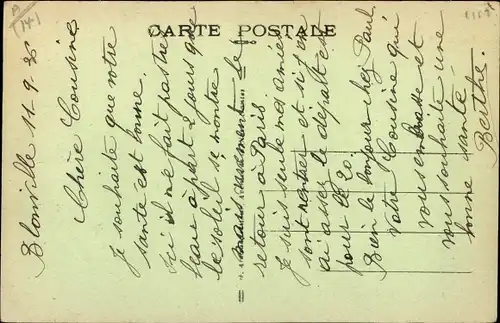 A
(14)
CARTE POSTALE
Blonville 11-9-36
Chère Cousine
Je souhaite que votre
santé est bonne.
Ici il ne fait pas très
beau à part 2 jours que
le soleil se montre
mais rarement le
retour à Paris
Je suis seule mes amies
sont rentrées et si j'en
ai assez le départ est
pour le 20.
Bien le bonjour chez Paul
Votre Cousine qui
vous embrasse et
vous souhaite une
bonne santé
Berthe.